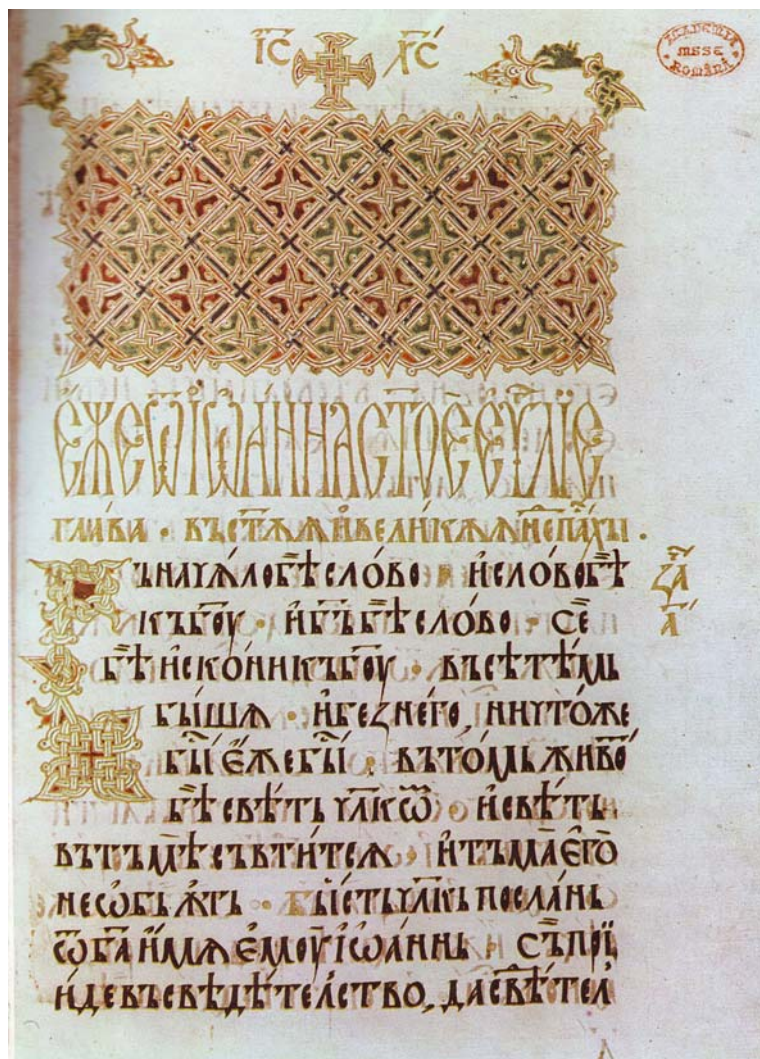 ІС ХС
ACADEMIA
MSSE
ROMÂNĂ
ЕЖЕ Ѿ ІѠАННА СТОЕ ЕУЛІЕ
ГЛАВА · ВЪ СТѪѪ И ВЕЛИКѪѪ Н҃Е ПАХЫ ·
Ъ НАЧѦЛО БѢ СЛОВО · И СЛОВО БѢ
КЪ БОУ · И БЪ БѢ СЛОВО · СЕ
БѢ ИСКОНИ КЪ БОУ · ВЪСѢ ТѢМЬ
БЫШѦ · И БЕЗ НЕГО, НИЧТОЖЕ
БЫ ЕЖЕ БЫ · ВЪ ТОМЬ ЖИВО
БѢ СВѢТЬ ЧЛКѾ · И СВѢТЬ
ВЪ ТЪМѢ СЪВТИТСѦ · И ТЪМА ЕГО
НЕ ѠБЬѪТЬ · БЫСТЬ ЧЛКЬ ПОСЛАНЬ
Ѿ БА ИМѦ ЕМОУ ІѠАННЬ · СЪ ПРІ
ИДЕ ВЪ СВѢДѢТЕЛСТВО, ДА СВѢТЕЛ
ЗА
А